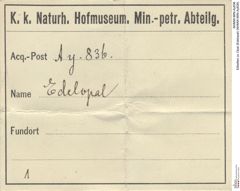 K. k. Naturh. Hofmuseum. Min.-petr. Abteilg.
Acq.-Post A y. 836.
Name Edelopal
Fundort
1